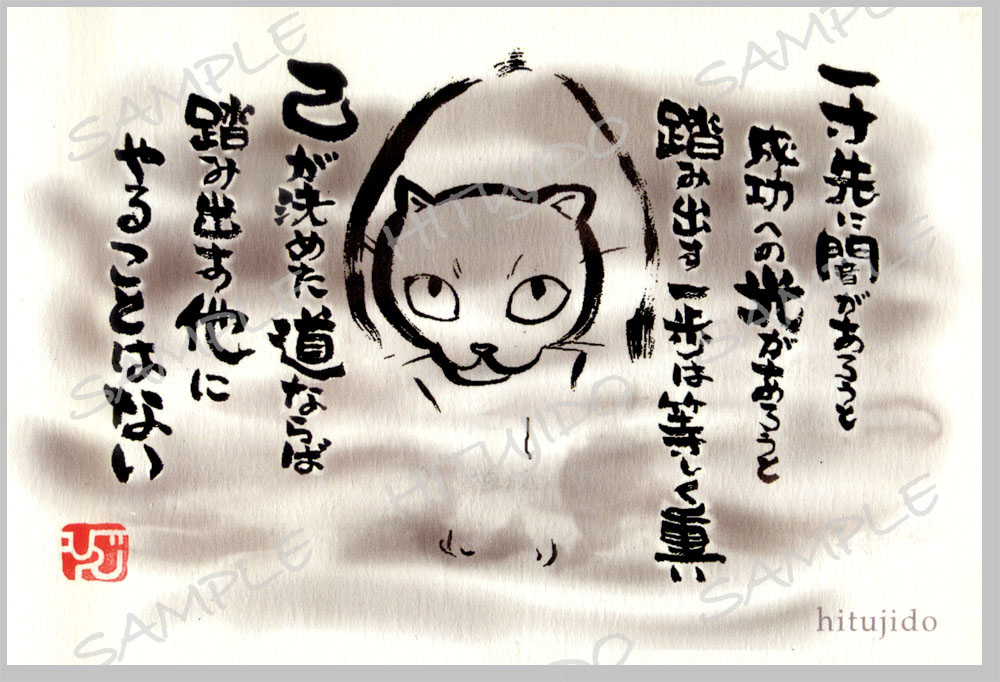 一寸先に闇があろうと
成功への光があろうと
踏み出す一歩は等しく重い
己が決めた道ならば
踏み出す他に
やることはない
hitujido
SAMPLE
SAMPLE
HITUJIDO
SAMPLE
SAMPLE
HITUJIDO
SAMPLE
SAMPLE
HITUJIDO